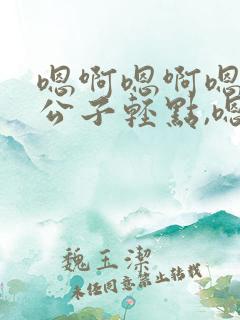 嗯啊嗯啊嗯
公子轻點,嗯
魏王潔
未经同意禁止转载